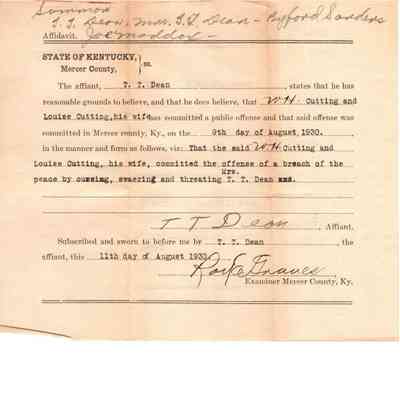 Summon
T. T. Dean, Mrs. T. T. Dean - Byford Sanders
Affidavit. Joe Maddox -
STATE OF KENTUCKY,
Mercer County, } ss.
The affiant, T. T. Dean , states that he has
reasonable grounds to believe, and that he does believe, that W H Cutting and
Louise Cutting, his wife has committed a public offense and that said offense was
committed in Mercer county, Ky., on the 9th day of August, 1930.
in the manner and form as follows, viz: That the said W H Cutting and
Louise Cutting, his wife, committed the offense of a breach of the
Mrs.
peace by cursing, swearing and threating T. T. Dean and.
T T Dean , Affiant.
Subscribed and sworn to before me by T. T. Dean , the
affiant, this 11th day of August 1930.
Graves
Examiner Mercer County, Ky.